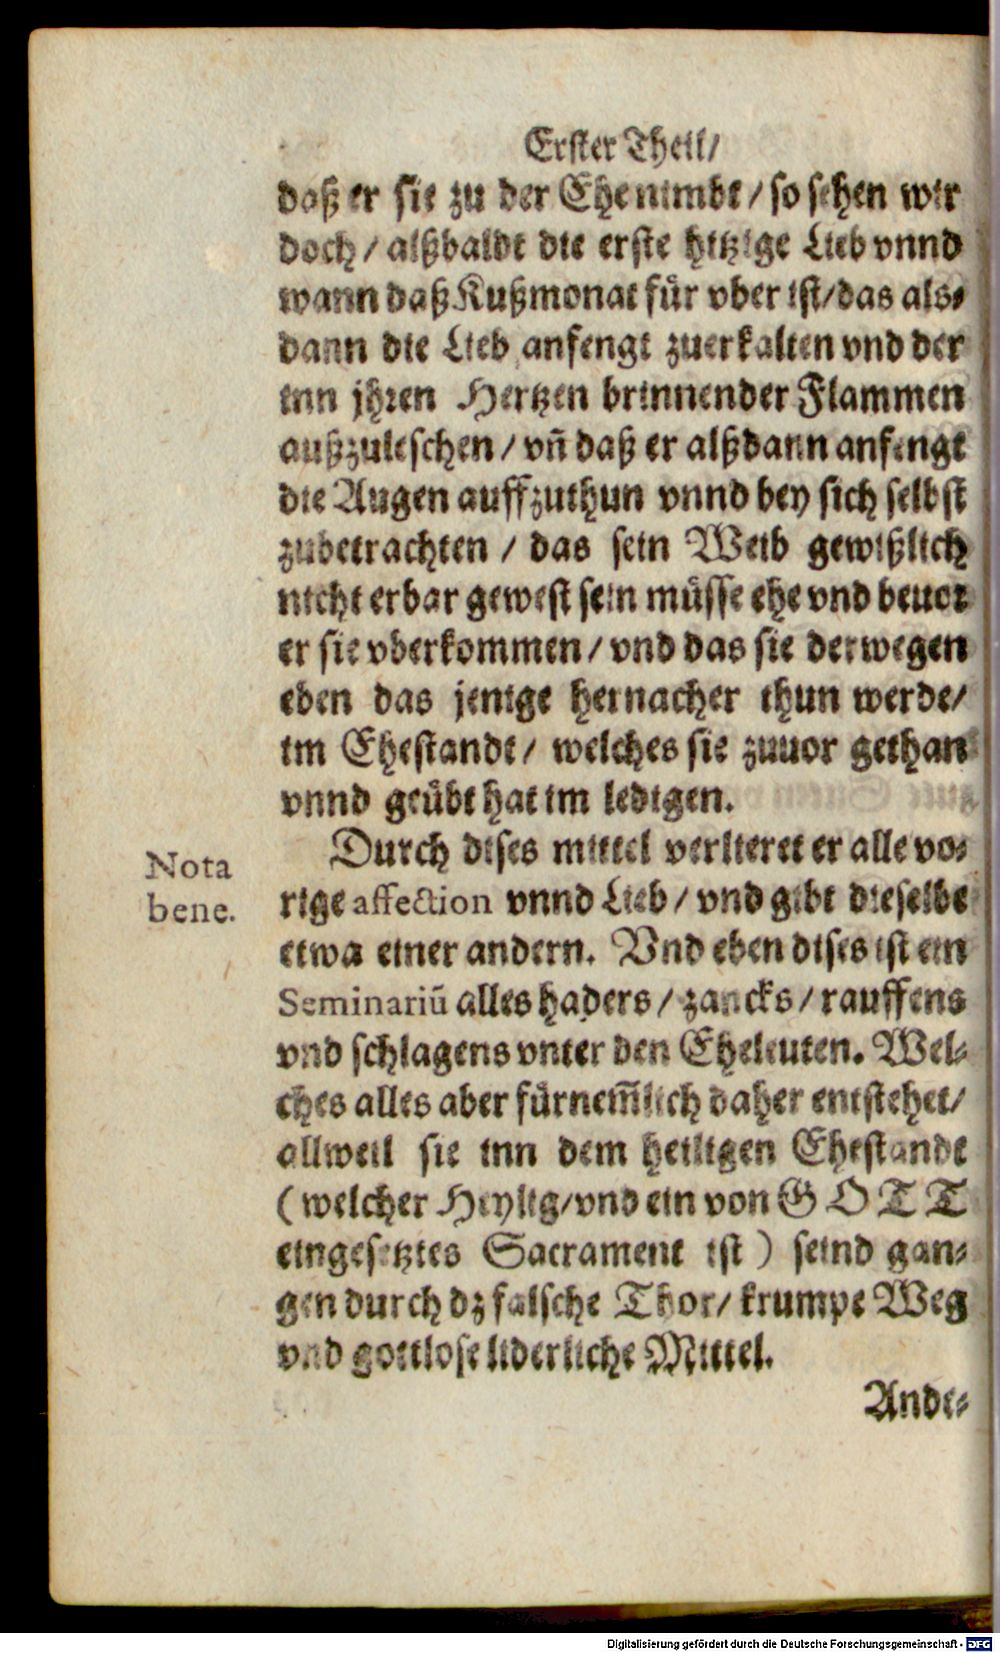 Erster Theil/
daß er sie zu der Ehe nimbt/ so sehen wir
doch/ alßbaldt die erste hitzige Lieb vnnd
wann daß Kußmonat für vber ist/ das als⸗
dann die Lieb anfengt zuerkalten vnd der
inn jhren Hertzen brinnender Flammen
außzuleschen/ vñ daß er alßdann anfengt
die Augen auffzuthun vnnd bey sich selbst
zubetrachten/ das sein Weib gewißlich
nicht erbar gewest sein müsse ehe vnd beuor
er sie vberkommen/ vnd das sie derwegen
eben das jenige hernacher thun werde/
im Ehestandt/ welches sie zuuor gethan
vnnd geübt hat im ledigen.
Durch dises mittel verlieret er alle vo⸗
Nota
bene.
rige affection vnnd Lieb/ vnd gibt dieselbe
etwa einer andern. Vnd eben dises ist ein
Seminariū alles haders/ zancks/ rauffens
vnd schlagens vnter den Eheleuten. Wel⸗
ches alles aber fürnem̃lich daher entstehet/
allweil sie inn dem heiligen Ehestandt
(welcher Heylig/ vnd ein von GOTT
eingesetztes Sacrament ist) seind gan⸗
gen durch dz falsche Thor/ krumpe Weg
vnd gottlose liderliche Mittel.
Ande⸗
Digitalisierung gefördert durch die Deutsche Forschungsgemeinschaft - DFG